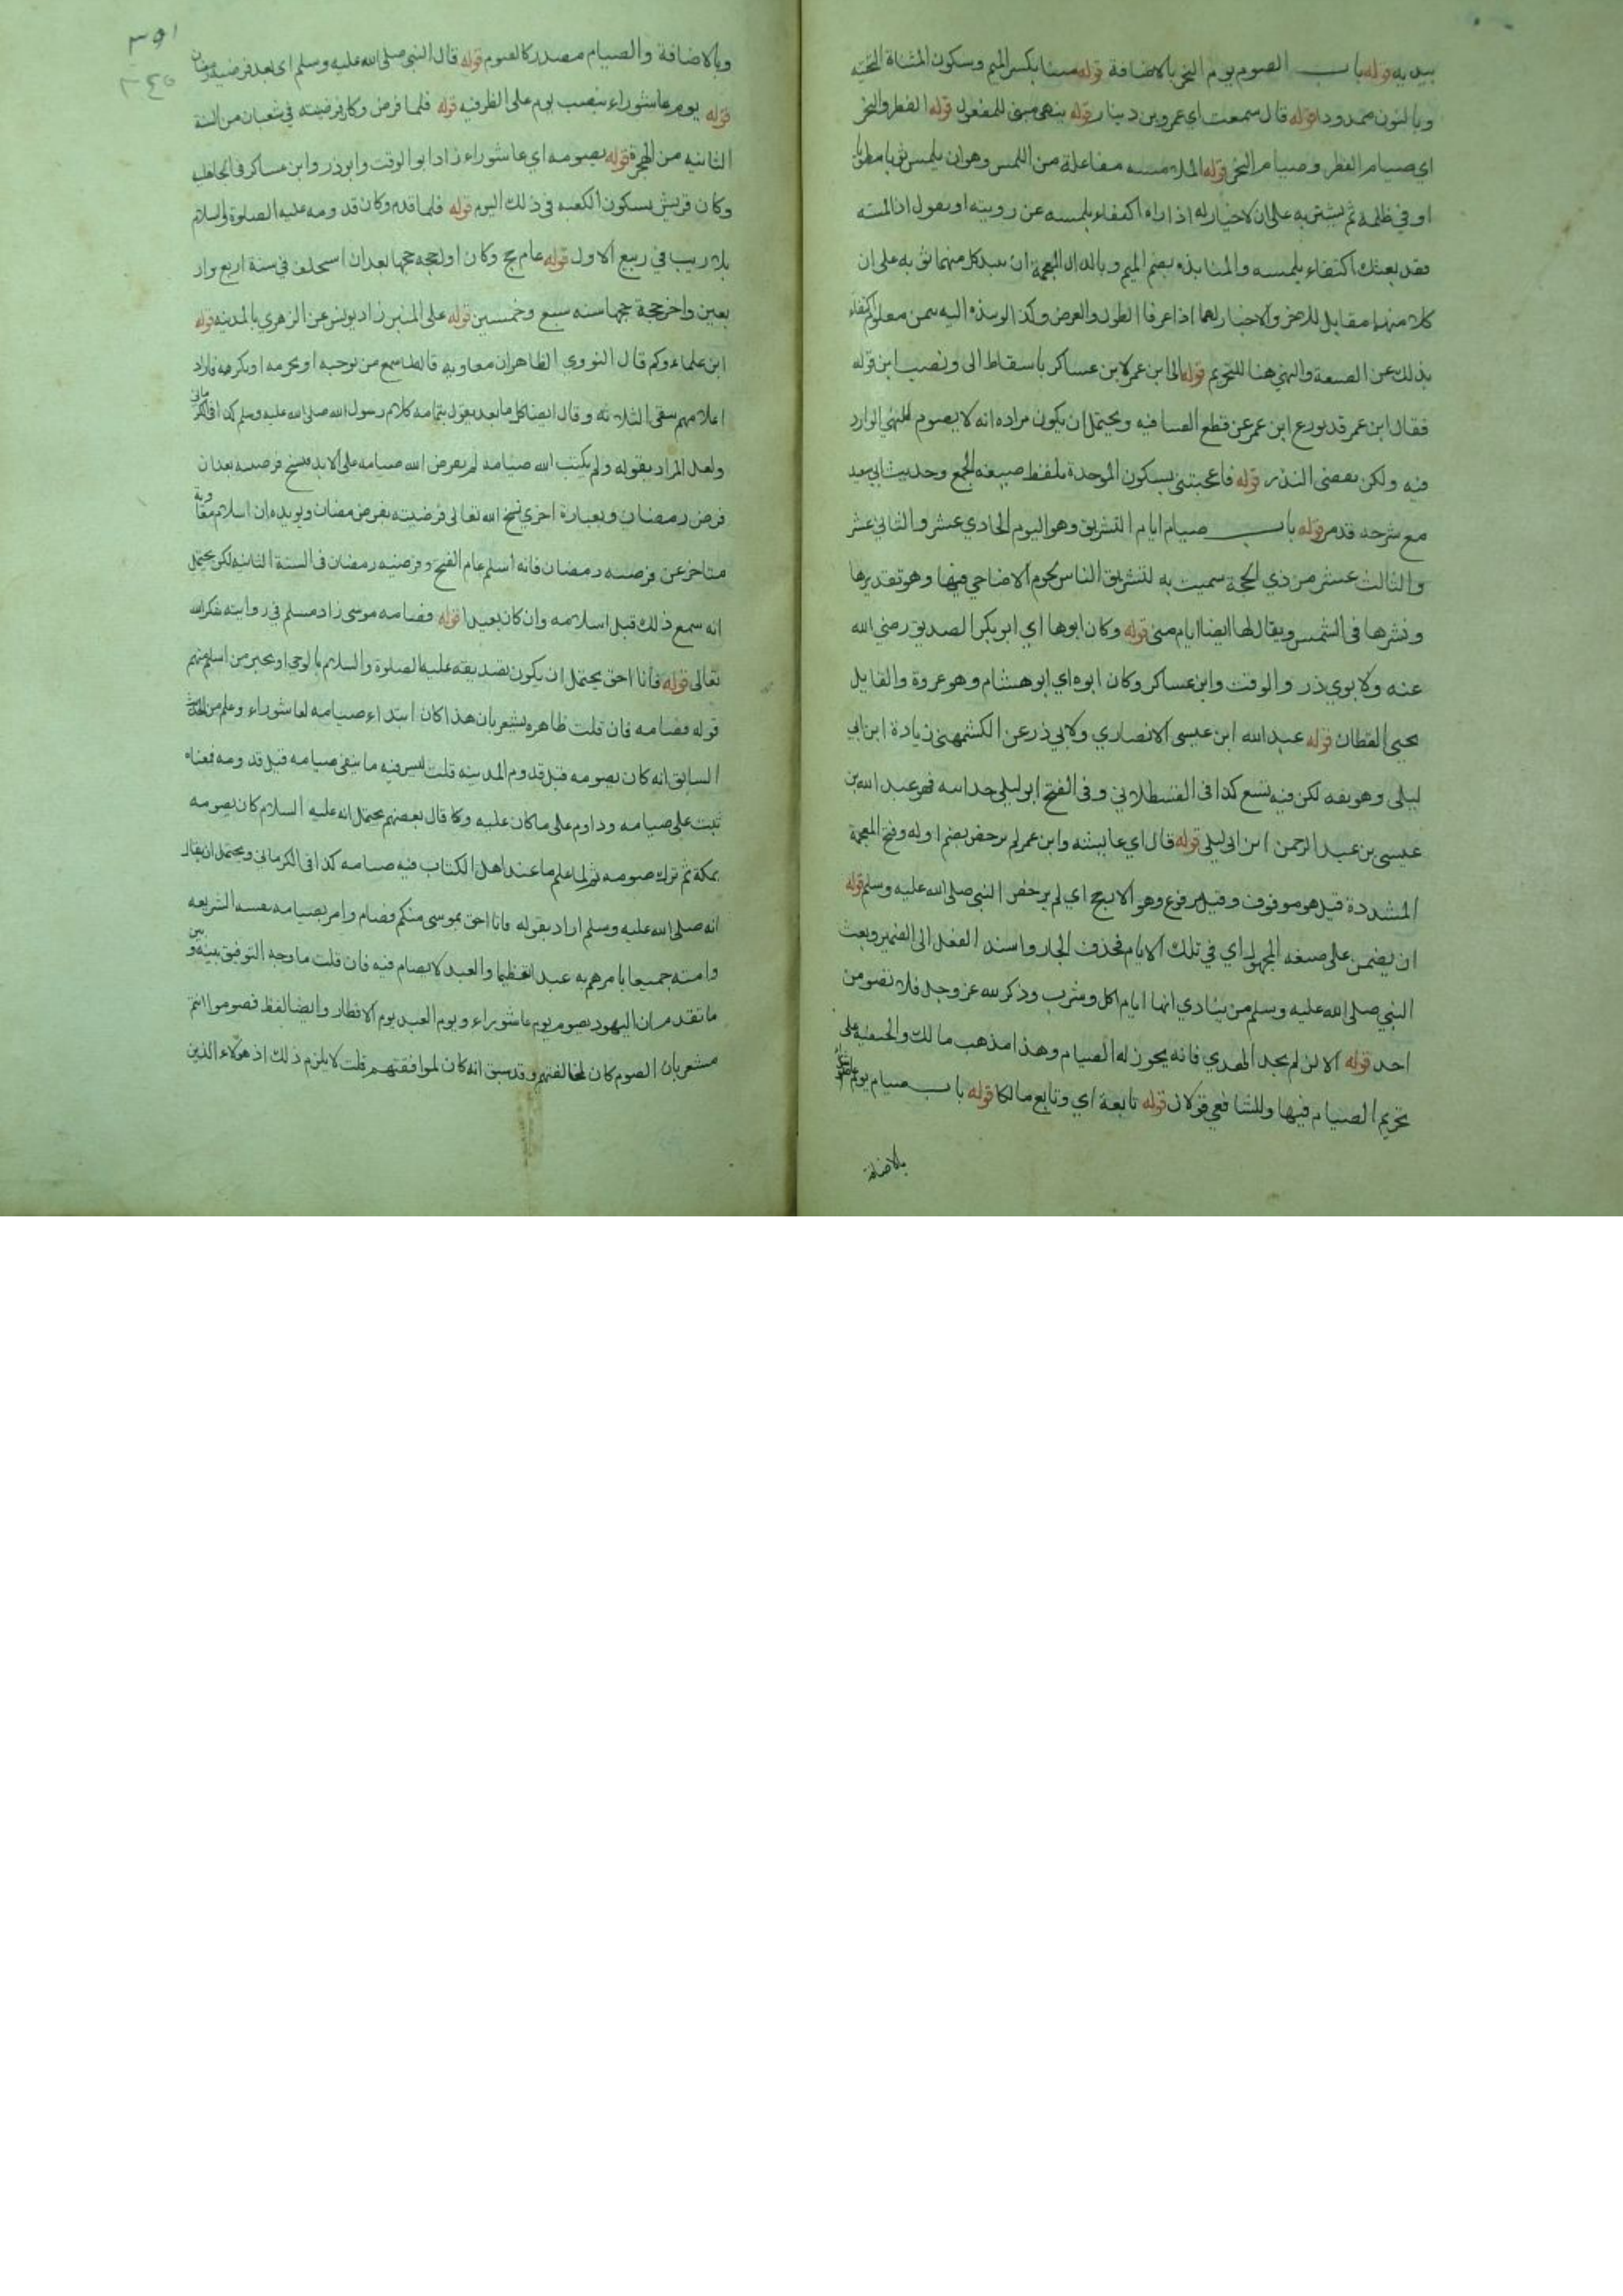 بيديه قوله باب الصوم يوم النحر بالاضافة قوله مينا بكسر الميم وسكون المثناة التحتية
وبالنون ممدودا قوله قال سمعت اي عمرو بن دينار قوله ينهى مبنى للمفعول قوله الفطر والنحر
اي صيام الفطر وصيام النحر قوله الملامسه مفاعلة من اللمس وهو ان يلمس ثوبا مطويا
او في ظلمة ثم يشتريه على ان لا خيار له اذا راه اكتفاء بلمسه عن رويته او يقول اذا لمسته
فقد بعتك اكتفاء بلمسه والمنابذه بضم الميم وبالذال المعجمة ان ينبد كل منهما ثوبه على ان
كلا منهما مقابل للاخر ولا خيار لهما اذا عرفا الطول والعرض وكذا لو نبذه اليه بثمن معلوم اكتفاء
بذلك عن الصيغة والنهي هنا للتحريم قوله الى ابن عمر لابن عساكر باسقاط الى ونصب ابن قوله
فقال ابن عمر قد تورع ابن عمر عن قطع الفتيا فيه ويحتمل ان يكون مراده انه لا يصوم للنهي الوارد
فيه ولكن يقضى النذر قوله فاعجبتني بسكون الموحدة بلفظ صيغه الجمع وحديث ابي سعيد
مع شرحه قد مر قوله باب صيام ايام التشريق وهو اليوم الحادي عشر والثاني عشر
والثالث عشر من ذي الحجة سميت به لتشريق الناس لحوم الاضاحي فيها وهو تقديرها
ونشرها في الشمس ويقال لها ايضا ايام منى قوله وكان ابوها اي ابو بكر الصديق رضي الله
عنه ولابوي ذر والوقت وابن عساكر وكان ابوه اي ابو هشام وهو عروة والقايل
يحيى القطان قوله عبد الله ابن عيسى الانصاري ولابي ذر عن الكشمهني زيادة ابن ابي
ليلى وهو ثقه لكن فيه تشيع كذا في القسطلاني وفي الفتح ابو ليلى جد ابيه فهو عبد الله بن
عيسى بن عبد الرحمن ابن ابي ليلى قوله قال اي عايشه وابن عمر لم يرخص بضم اوله وفتح المعجمة
المشددة قيل هو موقوف وقيل مرفوع وهو الارجح اي لم يرخص النبي صلى الله عليه وسلم قوله
ان يضمن على صيغه المجهول اي في تلك الايام فحذف الجار واسند الفعل الى الضمير وبعث
النبي صلى الله عليه وسلم من ينادي انها ايام اكل وشرب وذكر لله عز وجل فلا تصومن
احد قوله الا لمن لم يجد الهدي فانه يجوز له الصيام وهذا مذهب مالك والحنفيه على
تحريم الصيام فيها وللشافعي قولان قوله تابعة اي وتابع مالكا قوله باب صيام يوم عاشوراء
بالاضافة
٣٩١
٣٤٥
وبالاضافة والصيام مصدر كالصوم قوله قال النبي صلى الله عليه وسلم اي بعد فرضية رمضان
قوله يوم عاشوراء بنصب يوم على الظرفيه قوله فلما فرض وكان فرضيته في شعبان من السنة
الثانيه من الهجرة قوله يصومه اي عاشوراء زاد ابو الوقت وابو ذر وابن عساكر في الجاهليه
وكان قريش يسكون الكعبه في ذلك اليوم قوله فلما قدم وكان قدومه عليه الصلوة والسلام
بلا ريب في ربيع الاول قوله عام حج وكان اول حجه حجها بعد ان استخلف في سنة اربع وار
بعين واخر حجة حجها سنه سبع وخمسين قوله على المنبر زاد يونس عن الزهري بالمدينه قوله
ابن علماءوكم قال النووي الظاهر ان معاويه قاله لما سمع من يوجبه او يحرمه او يكرهه فاراد
اعلامهم بنفي الثلاثه وقال ايضا كل ما بعد يقول بتمامه كلام رسول الله صلى الله عليه وسلم كذا في الكرماني
ولعل المراد بقوله ولم يكتب الله صيامه لم يفرض الله صيامه على الابد فنسخ فرضيه بعد ان
فرض رمضان وبعبارة اخري نسخ الله تعالى فرضيته بفرض رمضان ويويده ان اسلام معاوية
متاخر عن فرضيه رمضان فانه اسلم عام الفتح وفرضيه رمضان في السنة الثانيه لكن يحتمل
انه سمع ذلك قبل اسلامه وان كان بعيدا قوله فصامه موسى زاد مسلم في روايته شكرا لله
تعالى قوله فانا احق يحتمل ان يكون تصديقه عليه الصلوة والسلام بالوحي او بخبر من اسلم منهم
قوله فصامه فان قلت ظاهره يشعر بان هذا كان ابتداء صيامه لعاشوراء وعلم من الحديث
السابق انه كان يصومه قبل قدوم المدينه قلت ليس فيه ما ينفي صيامه قبل قدومه فمعناه
ثبت على صيامه وداوم على ما كان عليه وكا قال بعضهم يحتمل انه عليه السلام كان يصومه
بمكة ثم ترك صومه ثم لما علم ما عند اهل الكتاب فيه صامه كذا في الكرماني ويحتمل ان يقال
انه صلى الله عليه وسلم اراد بقوله فانا احق بموسى منكم فصام وامر بصيامه نفسه الشريفه
وامته جميعا بامرهم به عبد العظيما والعيد لا يصام فيه فان قلت ما وجه التوفيق بينه وبين
ما تقدم من ان اليهود يصوم يوم عاشوراء ويوم العيد يوم الافطار وايضا لفظ فصوموا انتم
مشعر بان الصوم كان لمخالفتهم وقد سبق انه كان لموافقتهم قلت لا يلزم ذلك اذ هؤلاء الذين